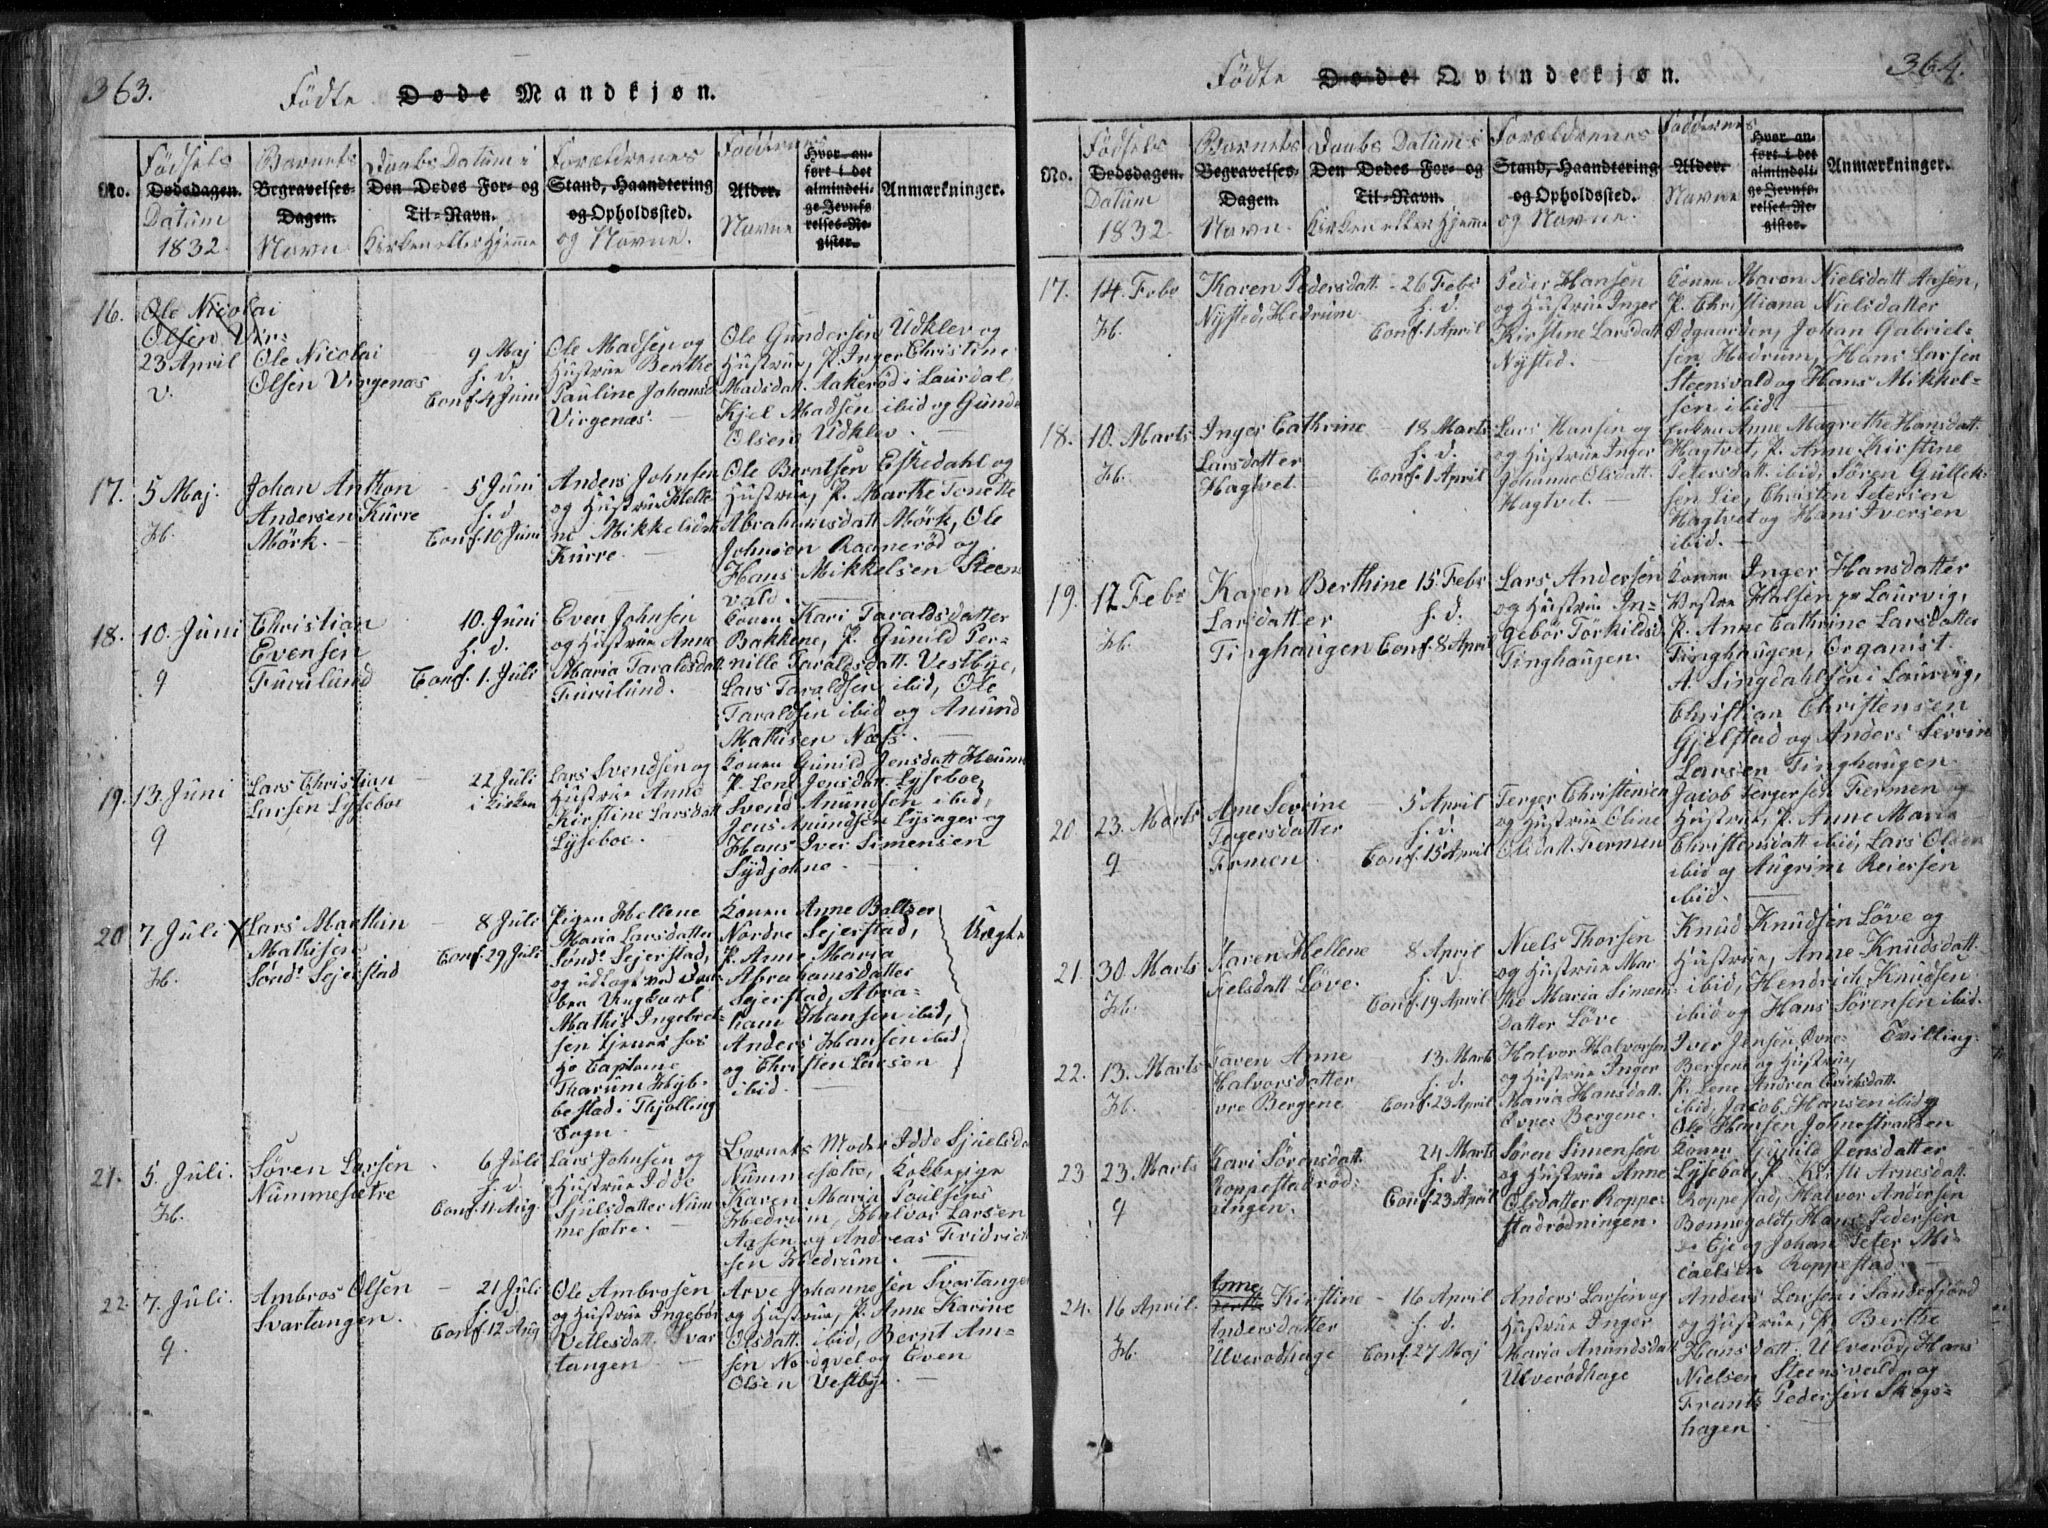 363.
Födte Døde Mandkjøn.
No.
Födsels
Dødsdagen.
Datum
1832.
Barnets
Begravelses-
Dagen.
Navn
Daabs Datum i
Den Dødes For- og
Til-Navn.
Kirken eller Hjemme
Forældrenes
Stand, Haandtering
og Opholdssted.
og Navne.
Faddernes
Alder.
Navne
Hvor an-
ført i det
almindeli-
ge Jevnfø-
relses-Re-
gister.
Anmærkninger.
16.
Ole Nicolai
Olsen Vir-
23 April
V.
Ole Nicolai
Olsen Virgenæs
9 Maj
h. d.
Conf. 4 Juni
Ole Madsen og
Hustrue Berthe
Pauline Johansd
Virgenæs.
Ole Gundersen Udklev og
Hustrue, P. Inger Christine
Madsdatt. Aakerød i Laurdal,
Kjel Madsen ibid og Gunde
Olsen Udklev.
17.
5 Maj.
H.
Johan Anthon
Andersen Kurre
Mørk.
5 Juni
h. d
Conf. 10 Juni
Anders Johnsen
og Hustrue Helle-
ne Mikkelsdatt
Kurre.
Ole Berntsen Eskedahl og
Hustrue, P. Marthe Tonette
Abrahamsdatt Mörk, Ole
Johnsen Rognerød og
Hans Mikkelsen Steens
vald.
18.
10. Juni
9
Christian
Evensen
Furulund
10. Juni
h. d.
Conf. 1. Juli
Even Johnsen
og Hustrue Anne
Maria Taraldsdatt
Furulund.
Conen Kari Taraldsdatter
Bakkene, P. Gunild Per-
nille Taraldsdatt. Vestbye,
Lars Taraldsen ibid, Ole
Taraldsen ibid og Anund
Mathisen Næss.
19.
13. Juni
9
Lars Christian
Larsen Lyseboe
22 Juli
i Kirken
Lars Svendsen og
Hustrue Anne
Kirstine Larsdatt
Lyseboe.
Conen Gunild Jensdatt Heum
P. Lene Jensdatt. Lyseboe,
Svend Anundsen ibid,
Jens Anundsen Lysager og
Hans Iver Simensen
Sydjohne
20
7. Juli
H.
Lars Marthin
Mathisen
Sönd. Sejerstad
8 Juli
Conf. 29 Juli
Pigen Hellene
Maria Larsdatter
Sönd. Sejerstad,
og udlagt ved
Ungkarl
Mathis Ingebret-
sen tjener hos
Hr Captaine
Tharum Hyb-
bestad i Thjølling
Sogn.
Conen Anne Baltzer
Nordre Sejerstad,
P. Anne Maria
Abrahamsdatter
Sejerstad, Abra-
ham Hansen ibid,
Anders Hansen ibid
og Christen Larsen
ibid.
Uægte
21.
5. Juli.
H.
Sören Larsen
Nummesætre
6 Juli
h. d
Conf. 11 Aug.
Lars Johnsen og
Hustrue Idde
Sjulsdatter Num
mesætre.
Barnets Moder Idde Sjuelsda
Nummesætre, Kokkepige
Karen Maria Poulsens
Hedrum, Halvor Larsen
Aasen og Andreas Fridrich
sen Hedrum.
22.
7. Juli.
9.
Ambros Olsen
Svartangen.
21 Juli
h. d
Conf. 12 Aug
Ole Ambrosen
og Hustrue Ingebør
Vetlesdatt. Svar
tangen
Arve Johannesen Svartangen
og Hustrue, P. Anne Karine
Olsdatt. ibid, Bernt Am-
sen Nordqvel og Even
Olsen Vestbye.
364.
Födte Døde Qvindekjøn.
No.
Födsels
Dødsdagen.
Datum
1832.
Barnets
Begravelses-
Dagen.
Navn.
Daabs Datum i
Den Dødes For- og
Til-Navn.
Kirken eller Hjemme
Forældrenes
Stand, Haandtering
og Opholdssted.
og Navne.
Faddernes
Alder.
Navne
Hvor an-
ført i det
almindeli-
ge Jevnfø-
relses-Re-
gister.
Anmærkninger.
17.
14. Febr
H.
Karen Pedersdatt
Nysted, Hedrum.
26 Febr
h. d.
Conf. 1 April
Peder Hansen
og Hustrue Inger
Kirstine Larsdatt
Nysted.
Conen Maren Nielsdatt Aasen,
P. Christiana Nielsdatter
Odgaarden, Johan Gabriel-
sen Hedrum, Hans Larsen
Steensvald og Hans Mikkel-
sen ibid.
18.
10. Marts
H.
Inger Cathrine
Larsdatter
Hagtvet.
18 Marts
h. d.
Conf. 1 April
Lars Hansen og
og Hustrue Inger
Johanne Olsdatt.
Hagtvet.
Enken Anne Magrethe Hansdatt.
Hagtvet, P. Anne Kirstine
Petersdatt. ibid, Sören Gullek-
sen Lie, Christen Petersen
Hagtvet og Hans Iversen
ibid.
19.
12 Febr
H.
Karen Berthine
Larsdatter
Tinghaugen
15 Febr
h. d.
Conf. 8 April
Lars Andersen
og Hustrue In-
gebör Törkildsd
Tinghaugen.
Conen Inger Hansdatter
Vestre Halsen pr Laurvig,
P. Anne Cathrine Larsdatter
Tinghaugen, Organist
A. Lingdahlsen i Laurvig,
Christian Christensen
Gjelstad og Anders Serrin
Larsen Tinghaugen
20
23. Marts
9
Ane Sevrine
Tergersdatter
Fermen
5 April
h. d.
Conf. 15 April
Terger Christensen
og Hustrue Oline
Olsdatt. Fermen
Jacob Tergersen Fermen og
Hustrue, P. Anne Maria
Christensdatt ibid, Lars Olsen
ibid og Augrim Reiersen
ibid.
21.
30. Marts
H.
Karen Hellene
Nielsdatt Löve.
8 April
h. d.
Conf. 19 April
Niels Thorsen
og Hustrue Mar
the Maria Simens
datter Löve
Knud Knudsen Löve og
Hustrue, Anne Knudsdatt.
ibid, Hendrich Knudsen
ibid og Hans Sörensen ibid.
22.
13. Marts
H.
Karen Anne
Halvorsdatter
vre Bergene
13. Marts
h. d.
Conf. 23 April
Halvor Halvorsen
og Hustrue Inger
Maria Hansdatt.
Øvre Bergene.
Iver Jensen Øvre
Bergene og Hustrue,
P. Lene Andrea Erichsdatt.
ibid, Jacob Hansen ibid og
Ole Hansen Johnestranden
Tvilling.
23
23. Marts
9
Kari Sörensdatt.
Roppestadrød-
ningen.
24 Marts
h. d.
Conf. 23 April
Sören Simensen
og Hustrue Anne
Olsdatter Roppe-
stadrødningen.
Conen Gunild Jensdatter
Lyseboe, P. Kirsti Arnesdatt.
Roppestad, Halvor Andersen
Bonnegoldt, Hans Pedersen
Eje og Johan Peter Mi-
caelsen Roppestad.
24.
16 April.
H.
Anne
Berthe Kirstine
Andersdatter
Ulverødhage
16 April
h. d.
Conf. 27 Maj
Anders Larsen og
Hustrue Inger
Maria Anundsdatt
Ulverødhage
Anders Larsen i Sandefjord
og Hustrue, P. Berthe
Hansdatt. Ulverød, Hans
Nielsen Steensvald og
Frants Pedersen Skogs-
hagen